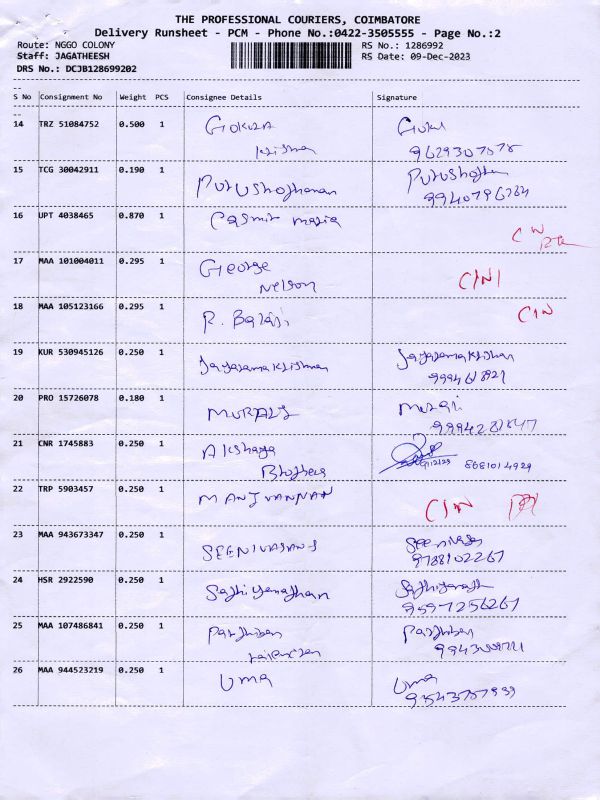 THE PROFESSIONAL COURIERS, COIMBATORE
Delivery Runsheet - PCM - Phone No.:0422-3505555 - Page No.:2
Route: NGGO COLONY
RS No.: 1286992
Staff: JAGATHEESH
RS Date: 09-Dec-2023
DRS No.: DCJB128699202
S No Consignment No Weight PCS Consignee Details Signature
14 TRZ 51084752 0.500 1 Gokula Gokul
Krishna 9629307578
15 TCG 30042911 0.190 1 Purushothaman Purushoth
9940796284
16 UPT 4038465 0.870 1 Casmir maria
CIN
17 MAA 101004011 0.295 1 George
Nelson CINI
18 MAA 105123166 0.295 1 R. Balaji CIN
19 KUR 530945126 0.250 1 Jayaramakrishnan Jayaramakrishnan
20 PRO 15726078 0.180 1 MURALI Murali
21 CNR 1745883 0.250 1 Akshaya
Brothers 8681014929
22 TRP 5903457 0.250 1 MANIVANNAN CIN
23 MAA 943673347 0.250 1 SEENIVASAN S Seenivasan
9788102267
24 HSR 2922590 0.250 1 Sathiyanathan Sathiyanath
9597256267
25 MAA 107486841 0.250 1 Parthiban Parthiban
26 MAA 944523219 0.250 1 Uma Uma